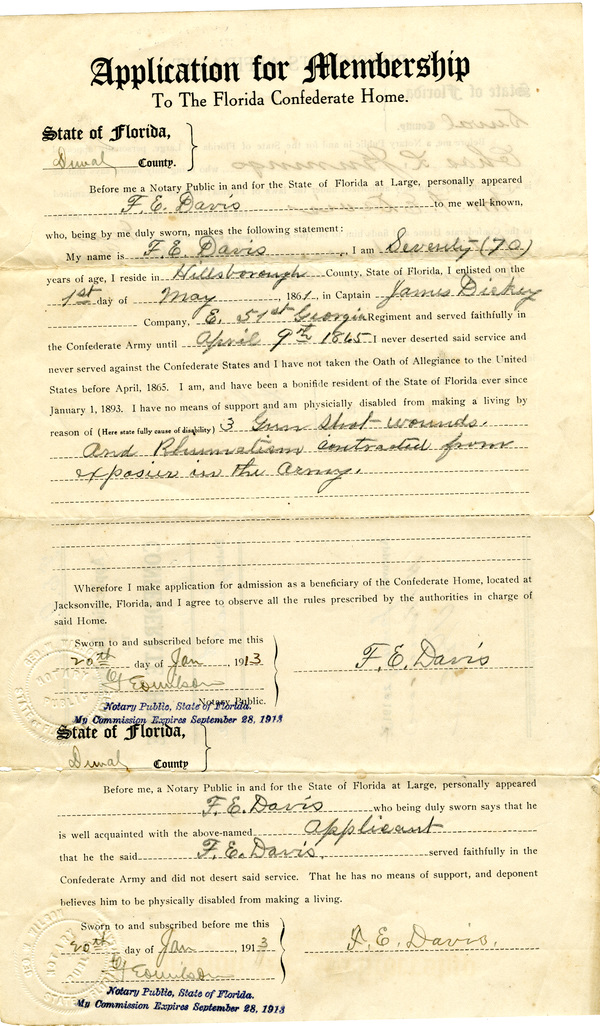 Application for Membership
To The Florida Confederate Home.
State of Florida,
Duval County.
Before me a Notary Public in and for the State of Florida at Large, personally appeared
F. E. Davis to me well known,
who, being by me duly sworn, makes the following statement:
My name is F. E. Davis, I am Seventy (70)
years of age, I reside in Hillsborough County, State of Florida, I enlisted on the
1st day of May, 1861, in Captain James Dickey
Company, E. 51st Georgia Regiment and served faithfully in
the Confederate Army until April 9th 1865 I never deserted said service and
never served against the Confederate States and I have not taken the Oath of Allegiance to the United
States before April, 1865. I am, and have been a bonifide resident of the State of Florida ever since
January 1, 1893. I have no means of support and am physicially disabled from making a living by
reason of (Here state fully cause of disability) 3 Gun Shot wounds.
And Rhumatism contracted from
exposier in the Army.
Wherefore I make application for admission as a beneficiary of the Confederate Home, located at
Jacksonville, Florida, and I agree to observe all the rules prescribed by the authorities in charge of
said Home.
Sworn to and subscribed before me this
20th day of Jan 1913
F. E. Davis
Notary Public.
Notary Public, State of Florida.
My Commission Expires September 28, 1913
State of Florida,
Duval County
Before me, a Notary Public in and for the State of Florida at Large, personally appeared
F. E. Davis who being duly sworn says that he
is well acquainted with the above-named Applicant
that he the said F. E. Davis. served faithfully in the
Confederate Army and did not desert said service. That he has no means of support, and deponent
believes him to be physically disabled from making a living.
Sworn to and subscribed before me this
20th day of Jan, 1913
F. E. Davis.
Notary Public, State of Florida.
My Commission Expires September 28, 1913